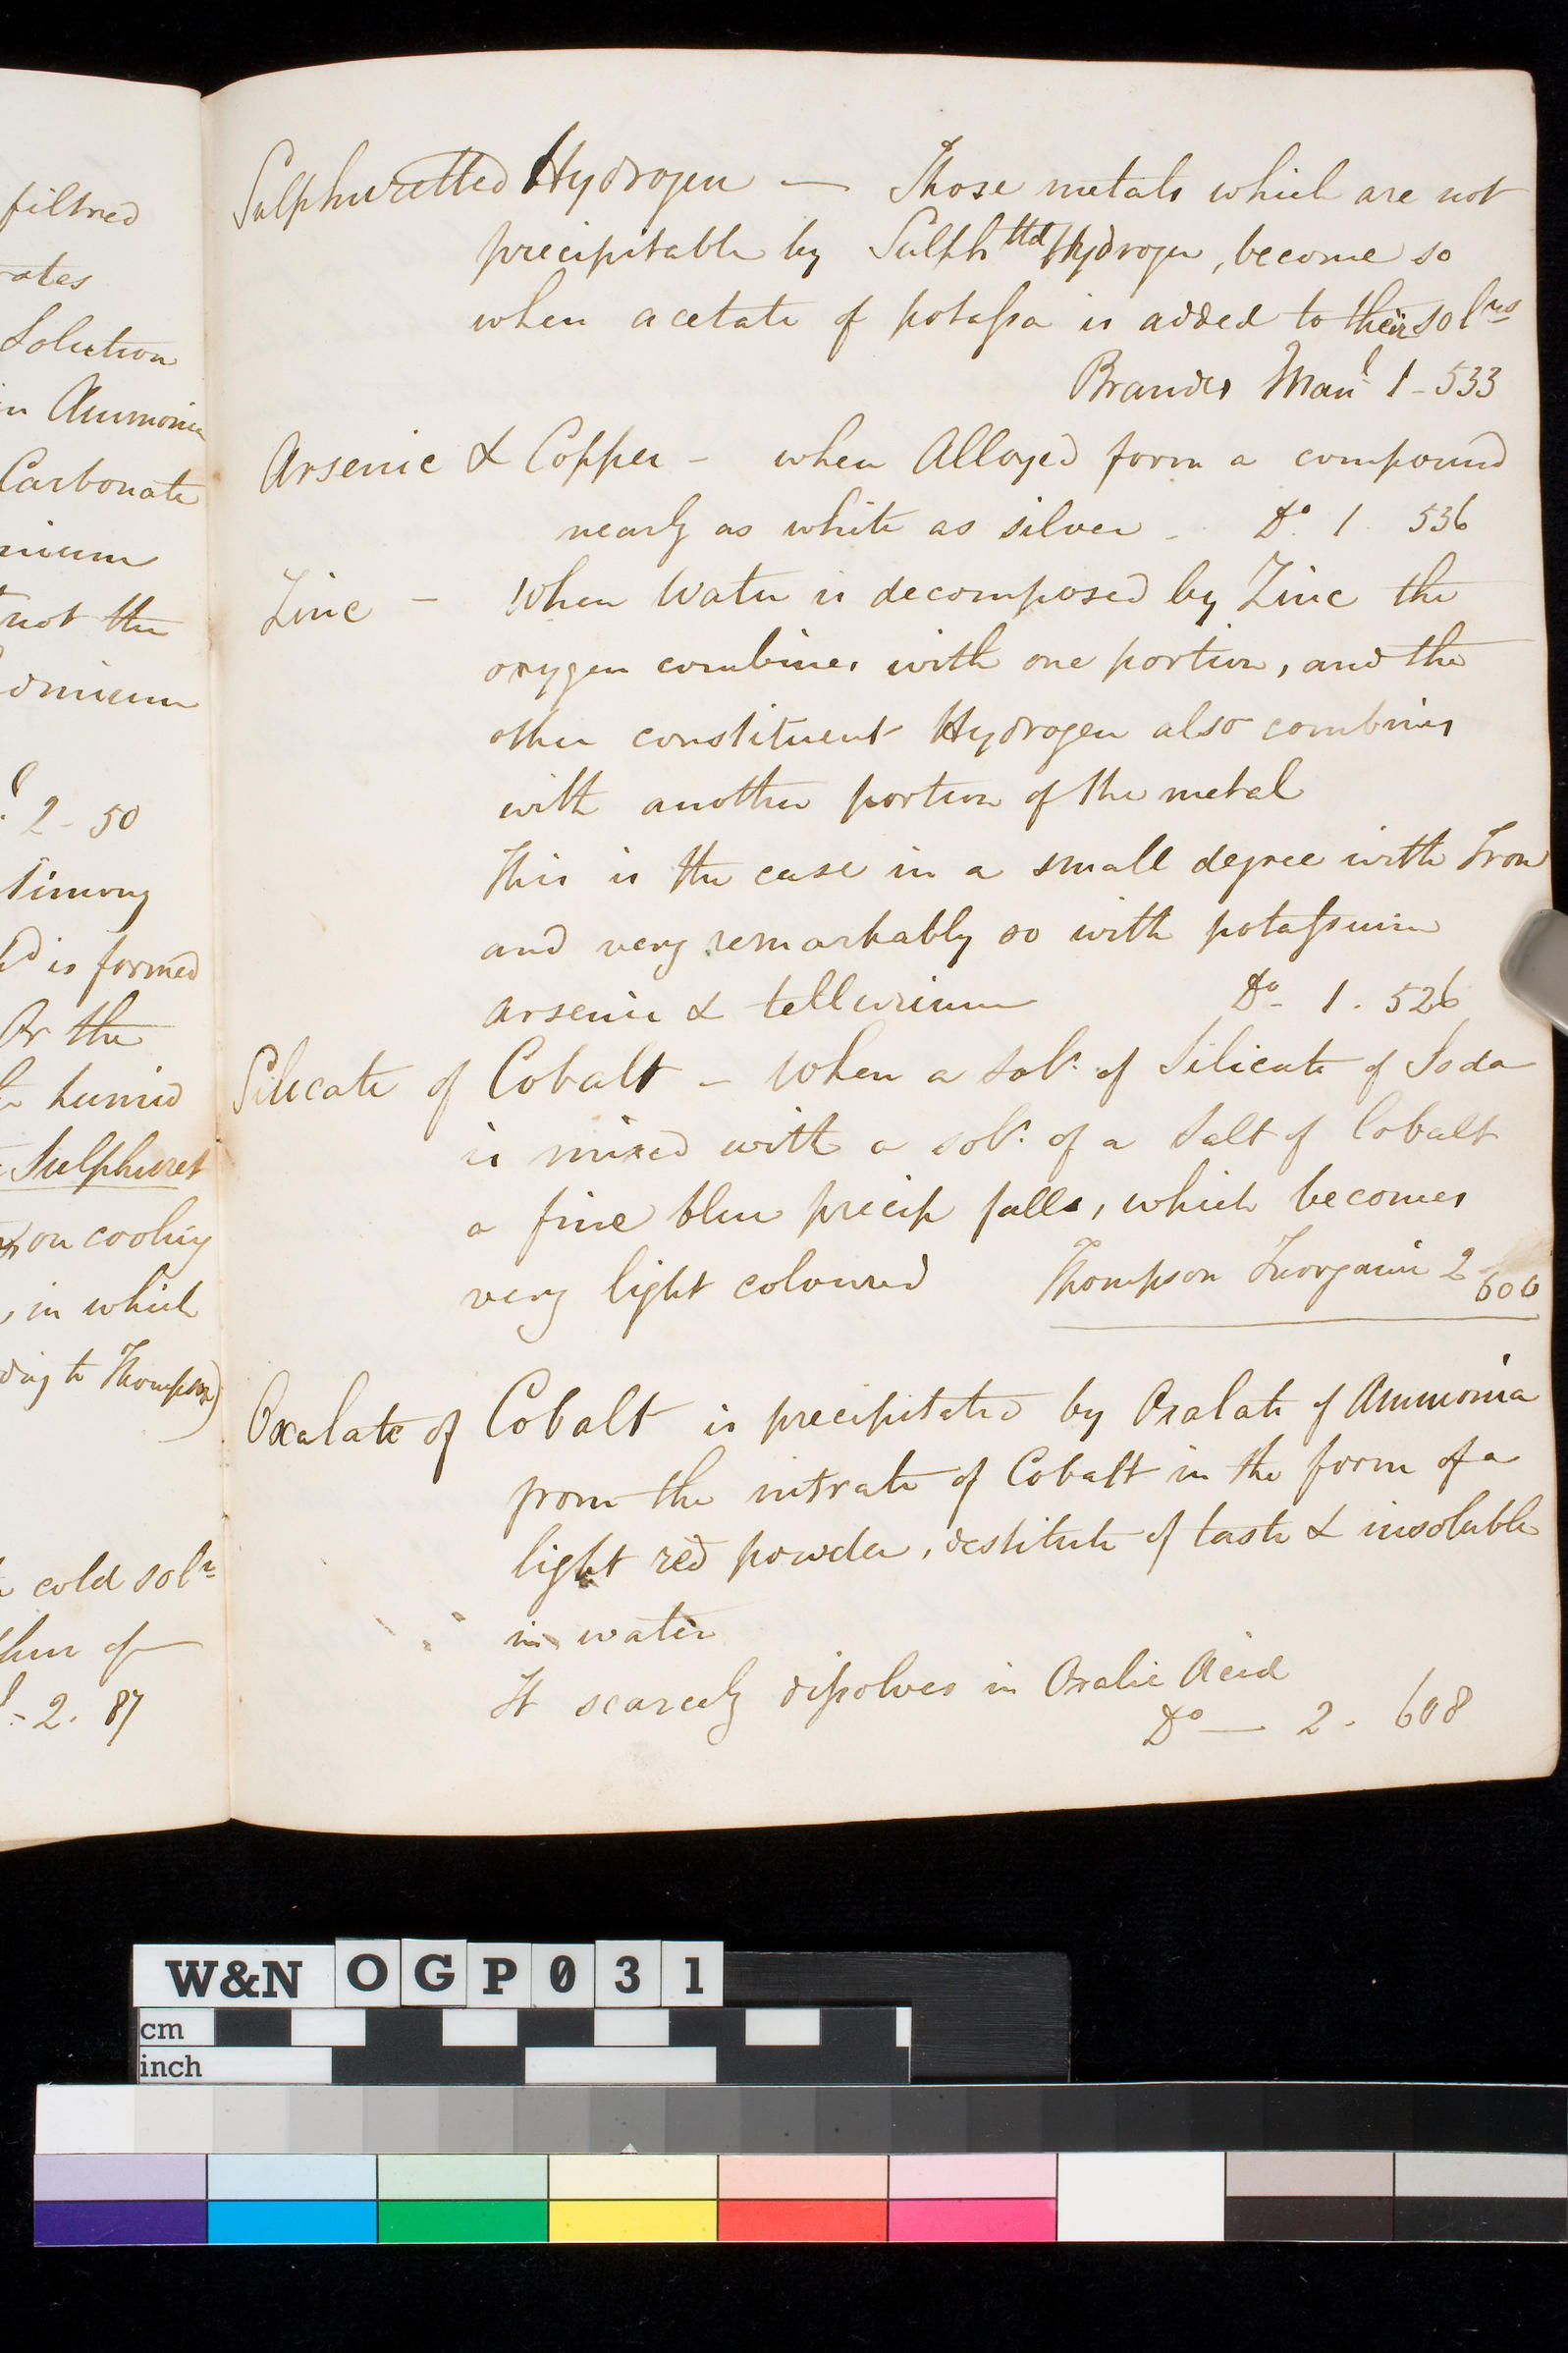 filtred
rates
Solution
in Ammonia
Carbonate
mium
not the
dmium
2 - 50
timony
is formed
Or the
humid
Sulphuret
on cooling
, in which
ding to Thompson)
cold sol.n
of
- 2. 87
Sulphuretted Hydrogen — Those metals which are not
precipitable by Sulph.ttd Hydrogen, become so
when acetate of potassa is added to their sol.ns
Brandes Man.l 1 - 533
Arsenic & Copper - when Alloyed form a compound
nearly as white as silver - Do. 1. 536
Zinc - When Water is decomposed by Zinc the
oxygen combines with one portion, and the
other constituent Hydrogen also combines
with another portion of the metal
This is the case in a small degree with Iron
and very remarkably so with potassium
arsenic & tellurium Do- 1. 526
Silicate of Cobalt - When a sol.n of Silicate of Soda
is mixed with a sol.n of a Salt of Cobalt
a fine blue precip falls, which becomes
very light coloured Thompson Inorganic 2 - 606
Oxalate of Cobalt is precipitated by Oxalate of Ammonia
from the nitrate of Cobalt in the form of a
light red powder, destitute of taste & insoluble
in water
It scarcely dissolves in Oxalic Acid
Do — 2. 608
W&N OGP031
cm
inch